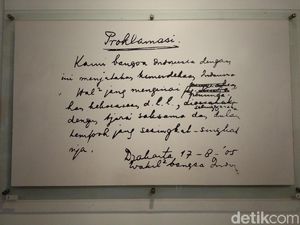 Proklamasi.
Kami bangsa Indonesia dengan
ini menjatakan kemerdekaan Indonesia
Hal² jang mengenai
kekoeasaan d.l.l.,
dengan tjara saksama dan dalam
tempoh jang sesingkat-singkat
nja.
Djakarta 17 - 8 - '05
Wakil² bangsa Indon
detikcom